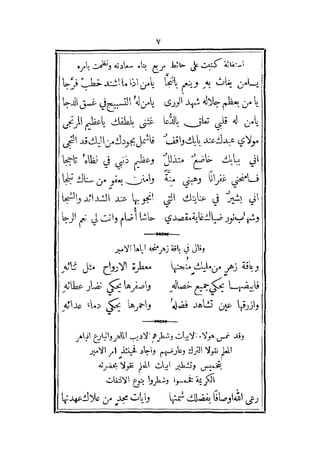 ٧
استغاثة كتبت على حائط مربع بناه سعادته ونظمت بامره
يا من يغاث به وينعم بالنجا يا من اذا ما اشتد خطب فرجا
يا من بعظم جلاله شهد الورى يا من له التسبيح في غسق الدجا
يا من له قلبي تعلق بالدعا غثني بلطفك يا عظيم المرتجى
مولاي عبدك عند بابك واقف فاشمل بجودك من اليك قد التجى
اني ببابك خاضع متذلل وعظيم ذنبي في لظاه تاججا
فامنحني غفرانا وهبني منة وامنن بعفو من سناك تبلجا
اني بشير في عنايتك التي انجو بها عند الشدائد والشجا
وشهاب نور ضياك غاية مقصدي حاشا أضام وانت لي نعم الرجا
وقال في باقة زهر منحه اياها الامير
وباقة زهر من مليك منحتها معطرة الارواح مثل ثنائه
فابيضها يحكي جميع خصاله واصفرها يحكي نضار عطائه
وازرقها عين تشاهد فضله واحمرها يحكي دماء عدائه
وقد خمس هولاء الابيات وشطرهم الاديب الماهر والبارع الباهر
المعلم نقولا الترك وعارضهم واجاد فحينئذ امر الامير
بتخميس وتشطير ابيات المعلم نقولا بحضرته
الكريمة فخمسوا وشطروا بنوع الالتفات
رعى الله اوصافا بفضلك شمتها وايات مجد من علاك عهدتها